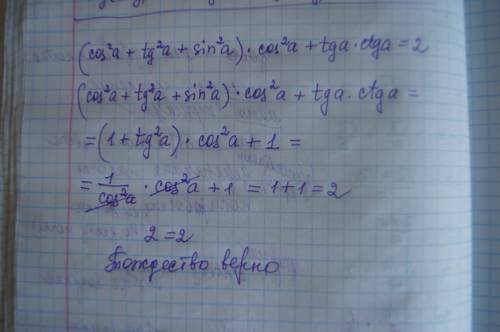 (cos²a + tg²a + sin²a) · cos²a + tga · ctga = 2
(cos²a + tg²a + sin²a) · cos²a + tga · ctga =
= (1 + tg²a) · cos²a + 1 =
= 1/cos²a · cos²a + 1 = 1+1 = 2
2 = 2
Тождество верно